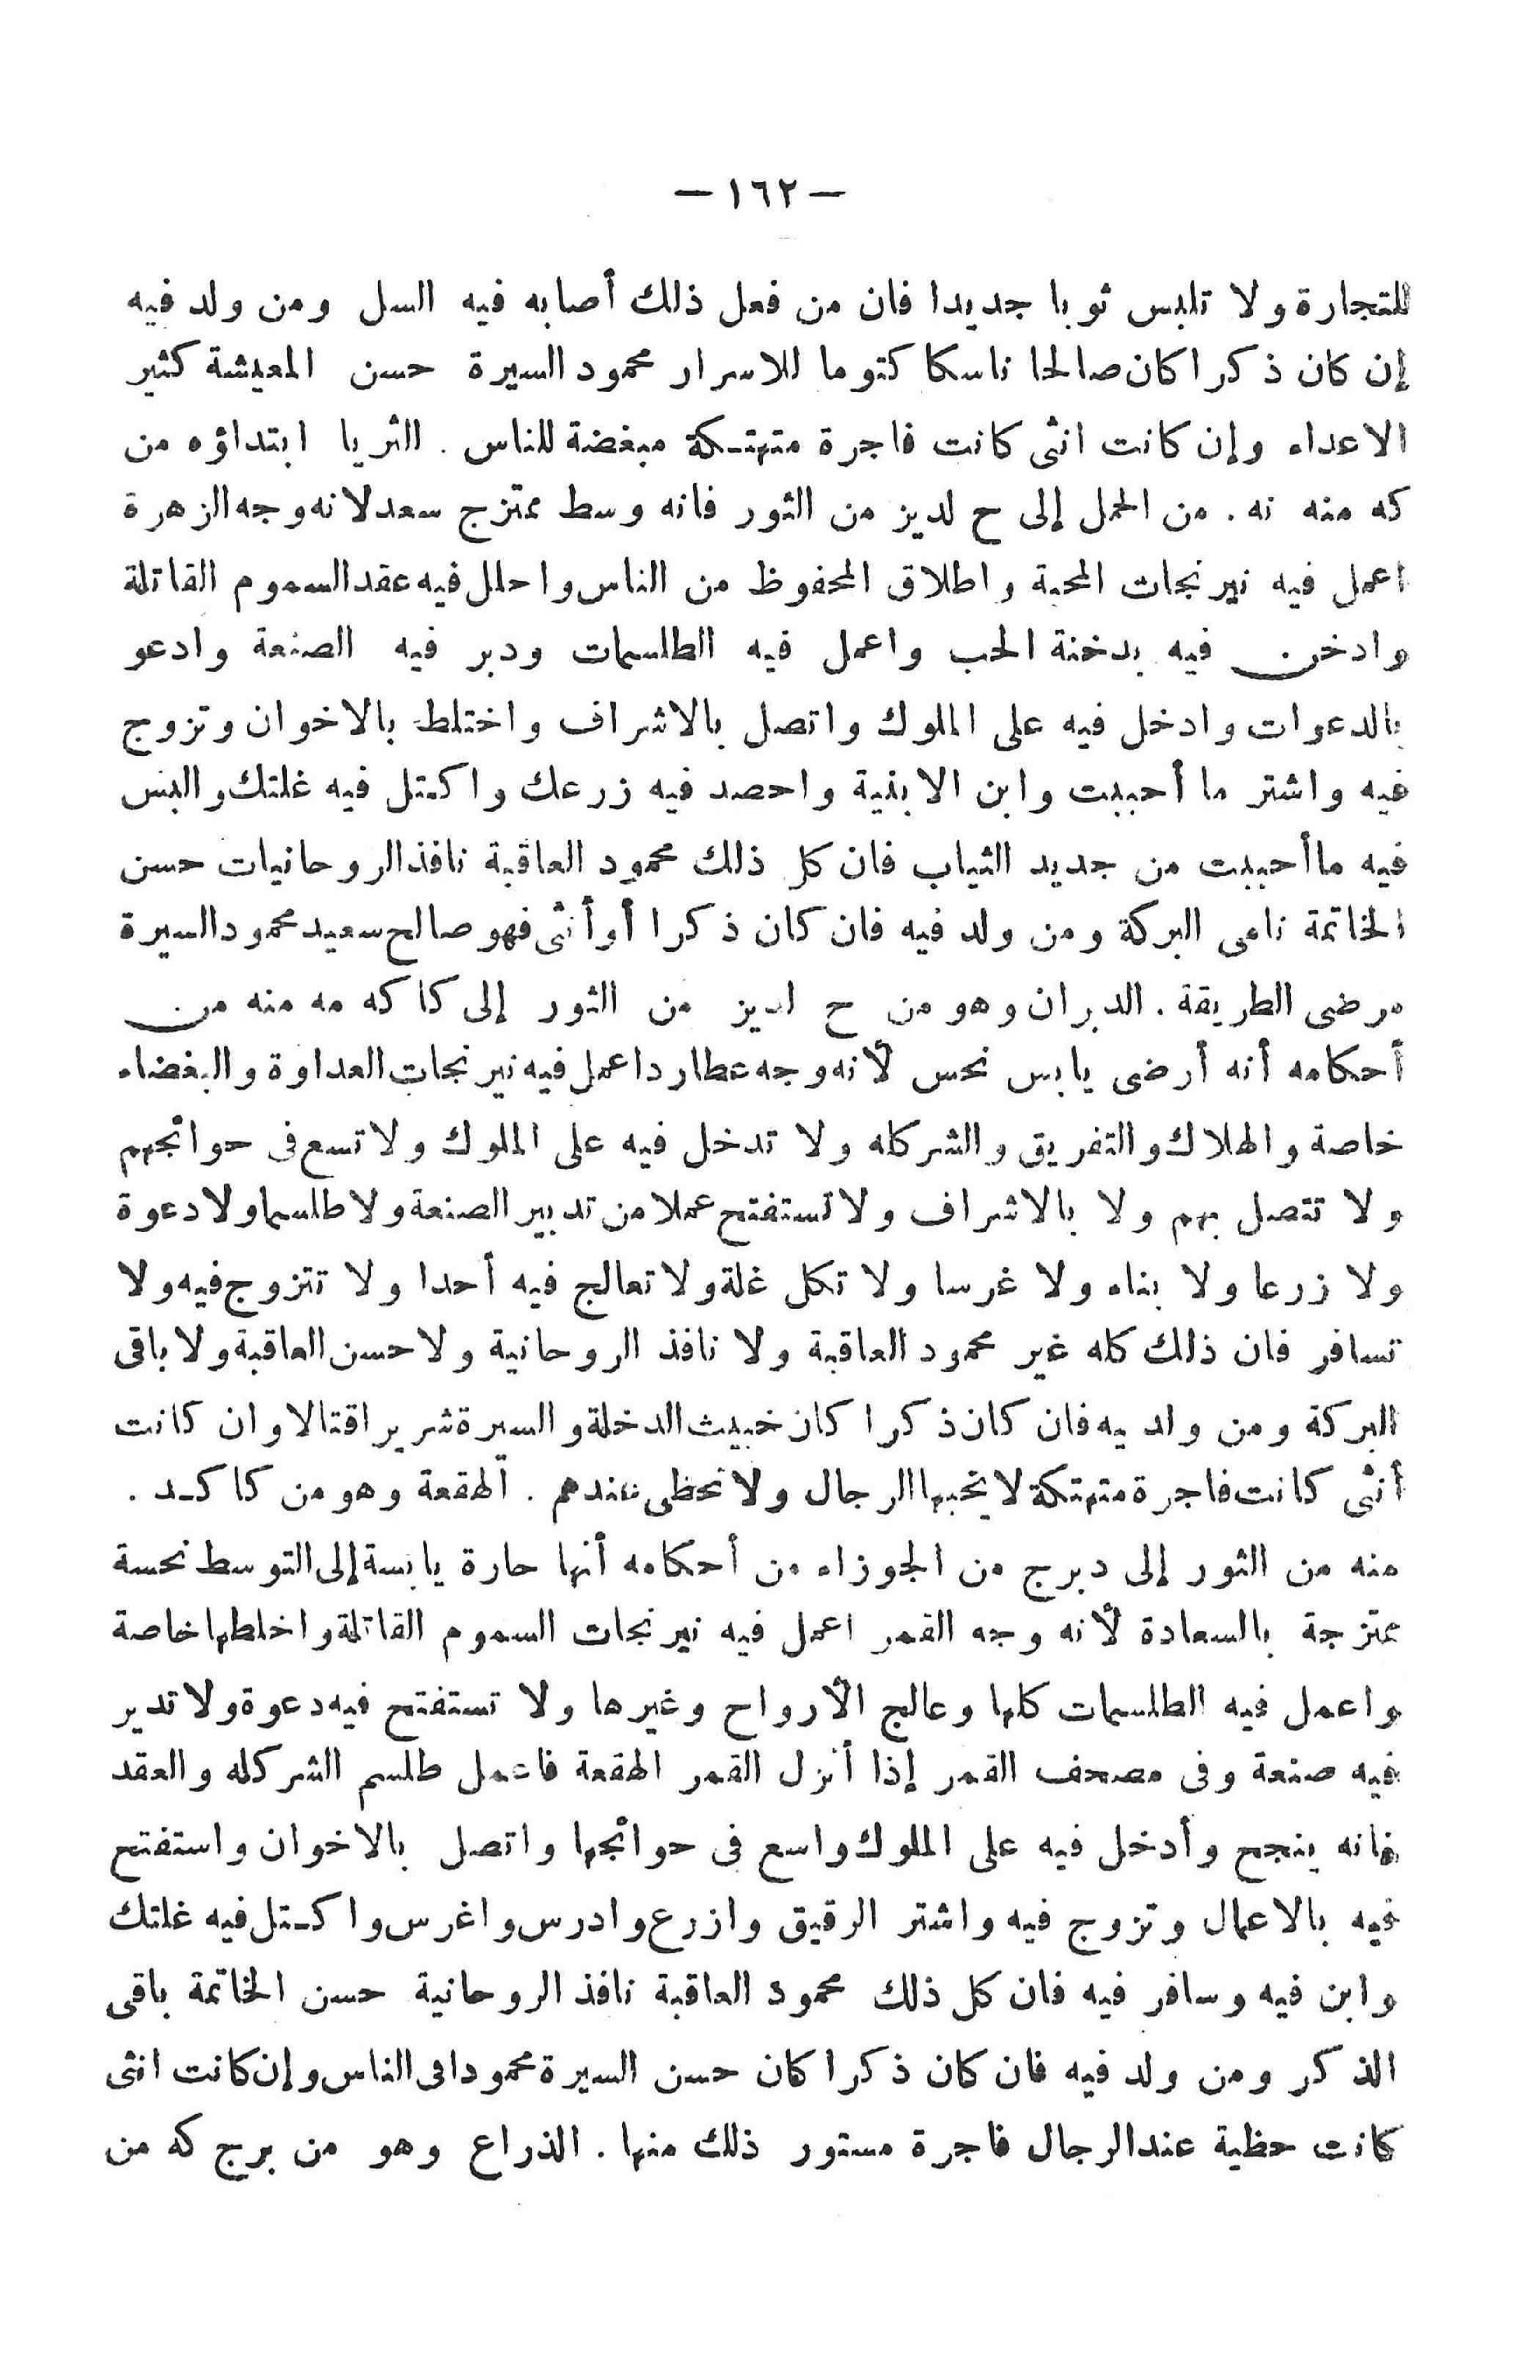 — ١٦٢ —
للتجارة ولا تلبس ثوبا جديدا فان من فعل ذلك أصابه فيه السل ومن ولد فيه
إن كان ذكرا كان صالحا ناسكا كتوما للاسرار محمود السيرة حسن المعيشة كثير
الاعداء وإن كانت انثى كانت فاجرة متهتكة مبغضة للناس . الثريا ابتداؤه من
كه منه نه . من الحمل إلى ح لديز من الثور فانه وسط ممتزج سعد لانه وجه الزهرة
اعمل فيه نيرنجات المحبة واطلاق المحفوظ من الناس واحلل فيه عقد السموم القاتلة
وادخن فيه بدخنة الحب واعمل فيه الطلسمات ودبر فيه الصنعة وادعو
بالدعوات وادخل فيه على الملوك واتصل بالاشراف واختلط بالاخوان وتزوج
فيه واشتر ما أحببت وابن الابنية واحصد فيه زرعك واكتل فيه غلتك والبس
فيه ما أحببت من جديد الثياب فان كل ذلك محمود العاقبة نافذ الروحانيات حسن
الخاتمة نامى البركة ومن ولد فيه فان كان ذكرا أو أنثى فهو صالح سعيد محمود السيرة
مرضى الطريقة . الدبران وهو من ح لديز من الثور إلى كا كه مه منه من
أحكامه أنه أرضى يابس نحس لأنه وجه عطارد اعمل فيه نيرنجات العداوة والبغضاء
خاصة والهلاك والتفريق والشر كله ولا تدخل فيه على الملوك ولا تسع فى حوائجهم
ولا تتصل بهم ولا بالاشراف ولا تستفتح عملا من تدبير الصنعة ولا طلسما ولا دعوة
ولا زرعا ولا بناء ولا غرسا ولا تكل غلة ولا تعالج فيه أحدا ولا تتزوج فيه ولا
تسافر فان ذلك كله غير محمود العاقبة ولا نافذ الروحانية ولا حسن العاقبة ولا باقى
البركة ومن ولد يه فان كان ذكرا كان خبيث الدخلة والسيرة شريرا قتالا وان كانت
أنثى كانت فاجرة متهتكة لا يحبها الرجال ولا تحظى عندهم . الهقعة وهو من كا كد .
منه من الثور إلى دبرج من الجوزاء من أحكامه أنها حارة يابسة إلى التوسط نحسة
ممتزجة بالسعادة لأنه وجه القمر اعمل فيه نيرنجات السموم القاتلة واخلطها خاصة
واعمل فيه الطلسمات كلها وعالج الأرواح وغيرها ولا تستفتح فيه دعوة ولا تدير
فيه صنعة وفى مصحف القمر إذا أنزل القمر الهقعة فاعمل طلسم الشر كله والعقد
فانه ينجح وأدخل فيه على الملوك واسع فى حوائجها واتصل بالاخوان واستفتح
فيه بالاعمال وتزوج فيه واشتر الرقيق وازرع وادرس واغرس واكتل فيه غلتك
وابن فيه وسافر فيه فان كل ذلك محمود العاقبة نافذ الروحانية حسن الخاتمة باقى
الذكر ومن ولد فيه فان كان ذكرا كان حسن السيرة محمودا فى الناس وإن كانت انثى
كانت حظية عند الرجال فاجرة مستور ذلك منها . الذراع وهو من برج كه من